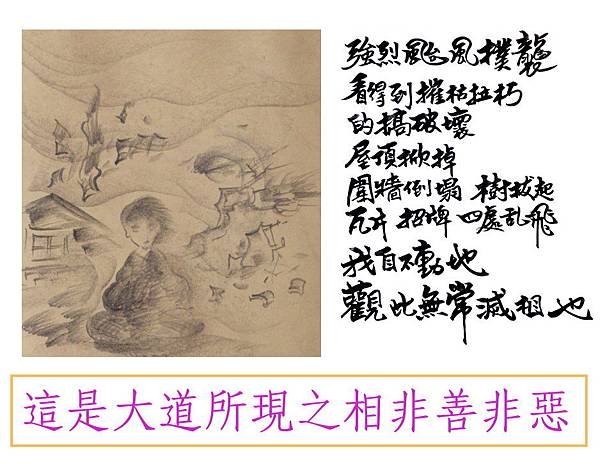 強烈颱風撲襲
看得到摧枯拉朽
的搞破壞
屋頂掀掉
圍牆倒塌 樹拔起
瓦片 招牌 四處乱飛
我自不動地
觀此無常滅相也
這是大道所現之相非善非惡